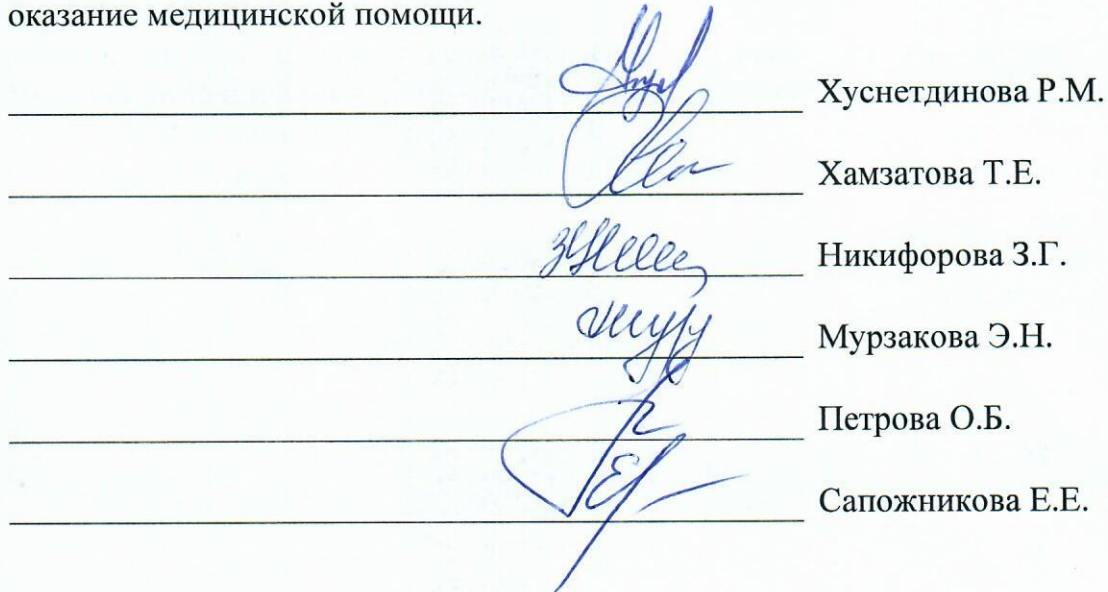 оказание медицинской помощи.
Хуснетдинова Р.М.
Хамзатова Т.Е.
Никифорова З.Г.
Мурзакова Э.Н.
Петрова О.Б.
Сапожникова Е.Е.